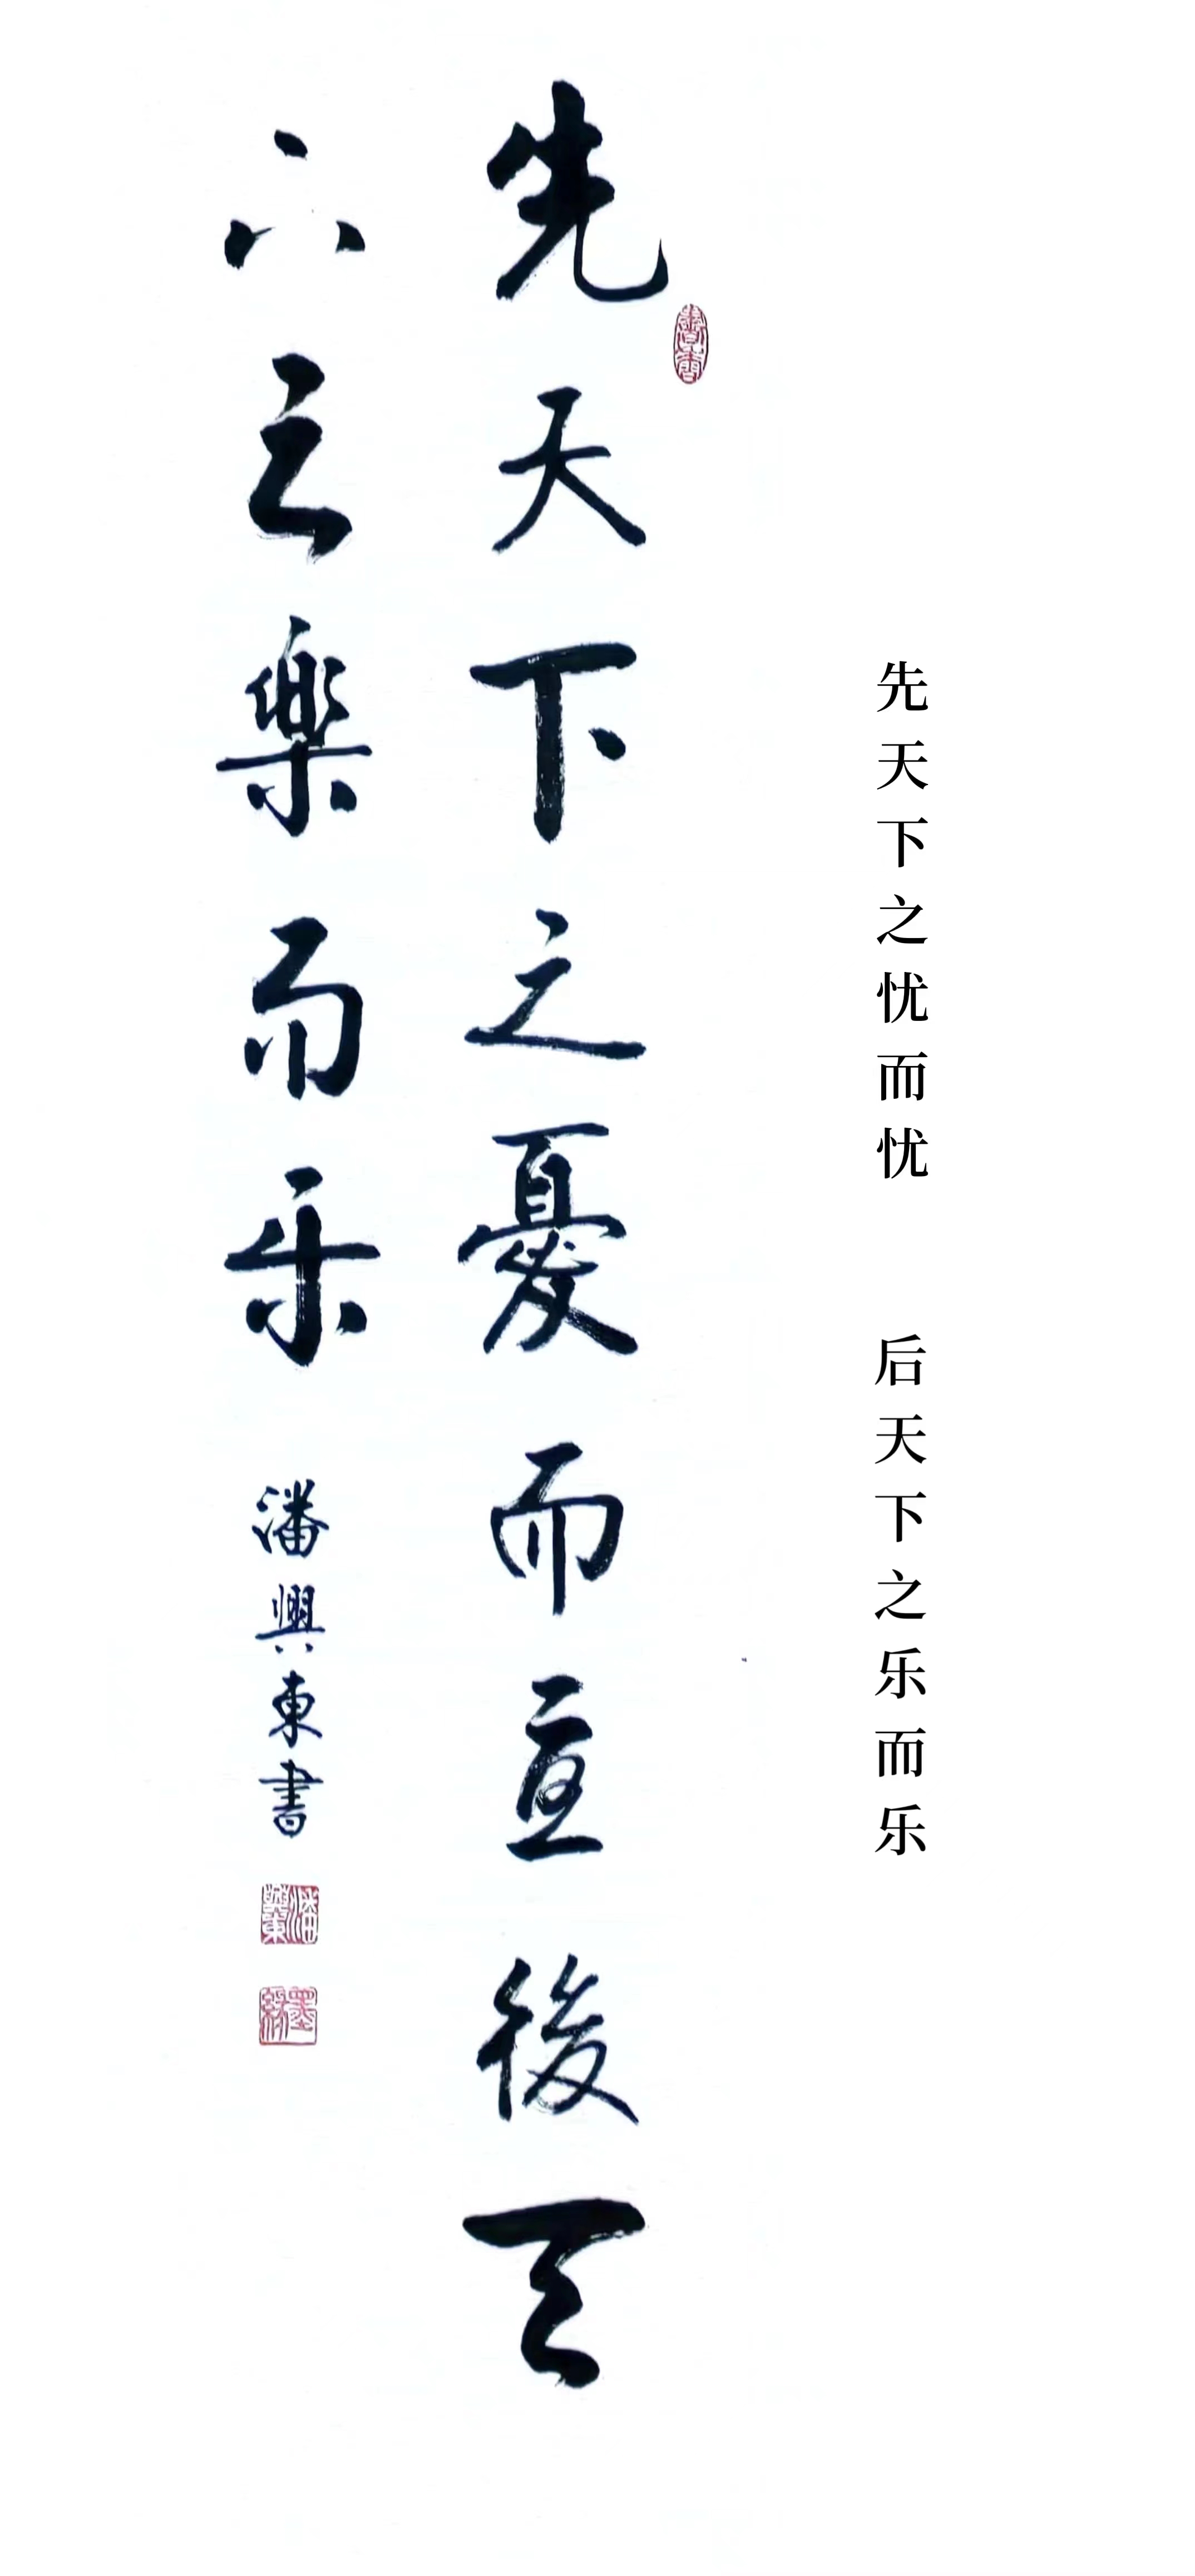 先天下之忧而忧　后天下之乐而乐
書香
先天下之憂而憂後天
下之樂而乐 潘興東書
潘興東
墨緣